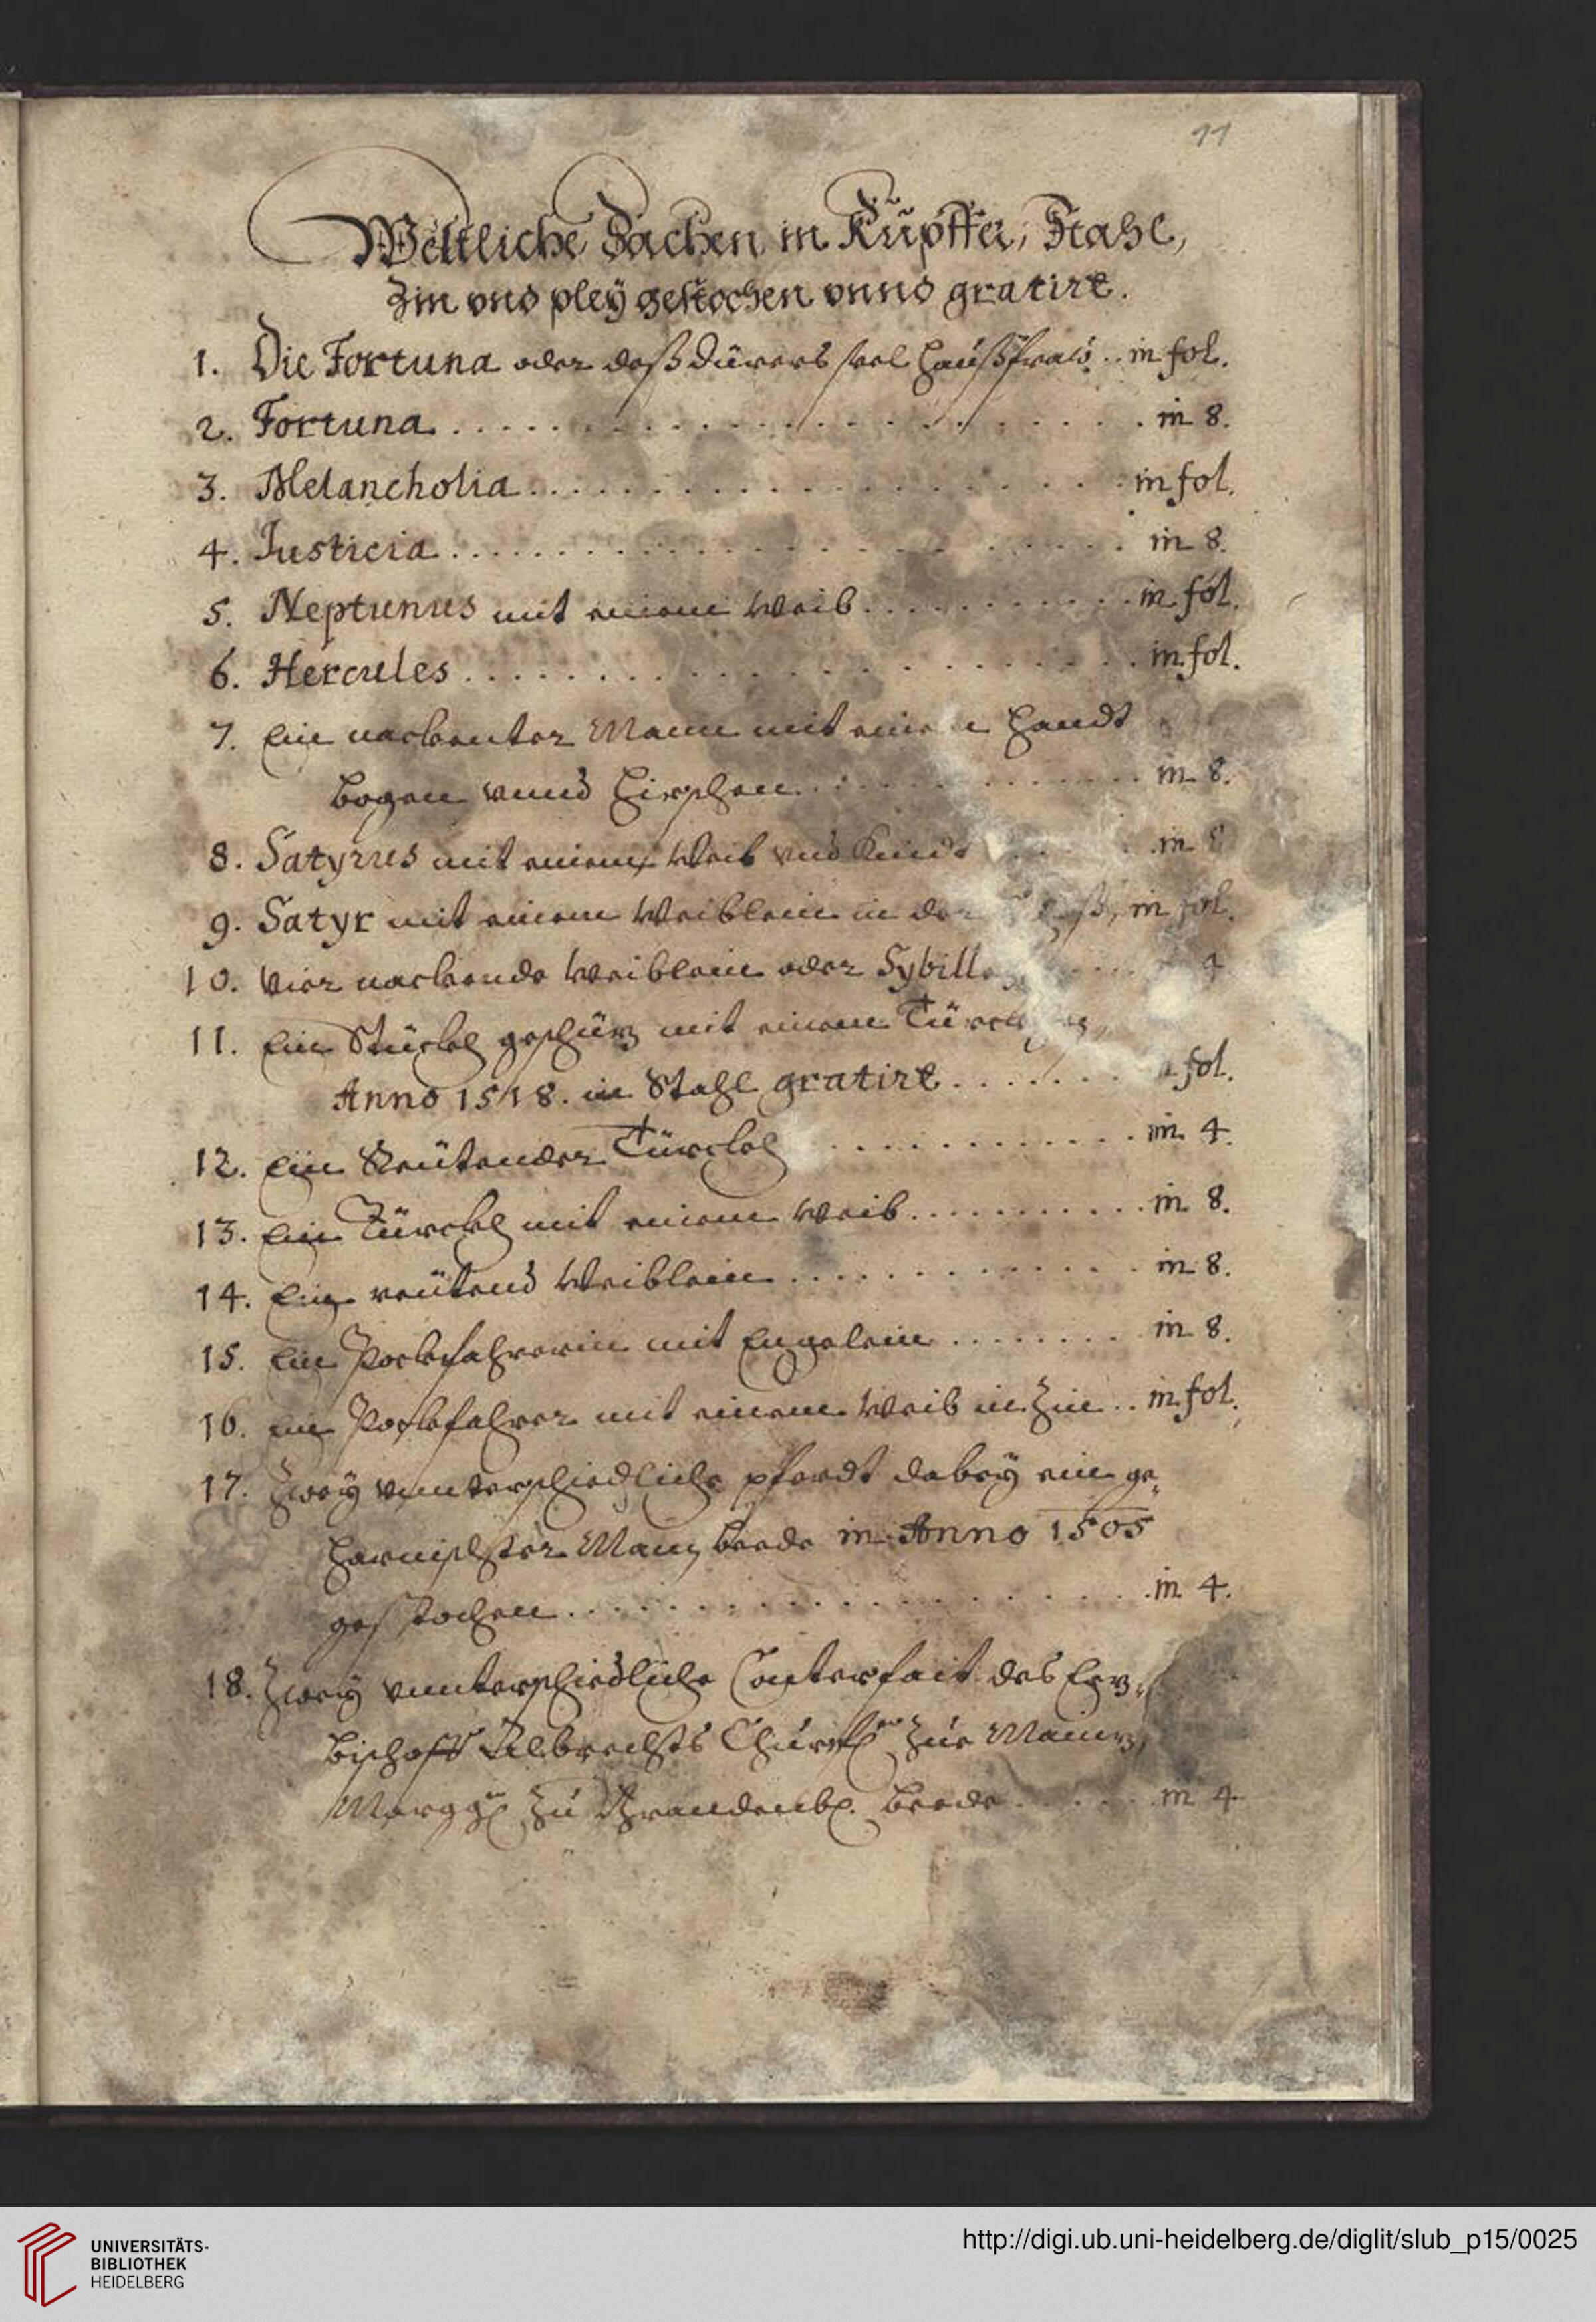 11
Weltliche Sachen in Kupffer, Stahl,
Zin vnd pley gestochen vnnd gratirt.
1. Die Fortuna oder deß Dürers sel. Haußfraw .. in fol.
2. Fortuna . . . . . in 8.
3. Melancholia . . . . . in fol.
4. Justicia . . . . . in 8.
5. Neptunus mit einem Weib . . . . . in fol.
6. Hercules . . . . . in fol.
7. Ein nackenter Mann mit einem Handt
bogen vnnd Hirschen . . . . . in 8.
8. Satyrus mit einem Weib vnd Kindt . . in 8
9. Satyr mit einem Weiblein in der in fol.
10. Vier nackende Weiblein oder Sybill 4
11. Ein Stückh geschütz mit einem
Anno 1518. in Stahl gratirt . . . . . fol.
12. Ein Reütender Türckh . . . . . in 4.
13. Ein Türckh mit einem Weib . . . . . in 8.
14. Ein reütend Weiblein . . . . . in 8.
15. Ein mit Engelein . . . . . in 8.
16. Ein mit einem Weib in Zin .. in fol.
17. Zwey vnnterschiedliche pferdt dabey ein ge-
harnischter Mann, beede in Anno 1505
gestochen . . . . . in 4.
18. Zwey vnnterschiedliche Conterfait des Erz-
bischoffs Albrechts zue Mainz,
Marggr. zu Brandenb. beede . . . . . in 4
UNIVERSITÄTS-
BIBLIOTHEK
HEIDELBERG
http://digi.ub.uni-heidelberg.de/diglit/slub_p15/0025